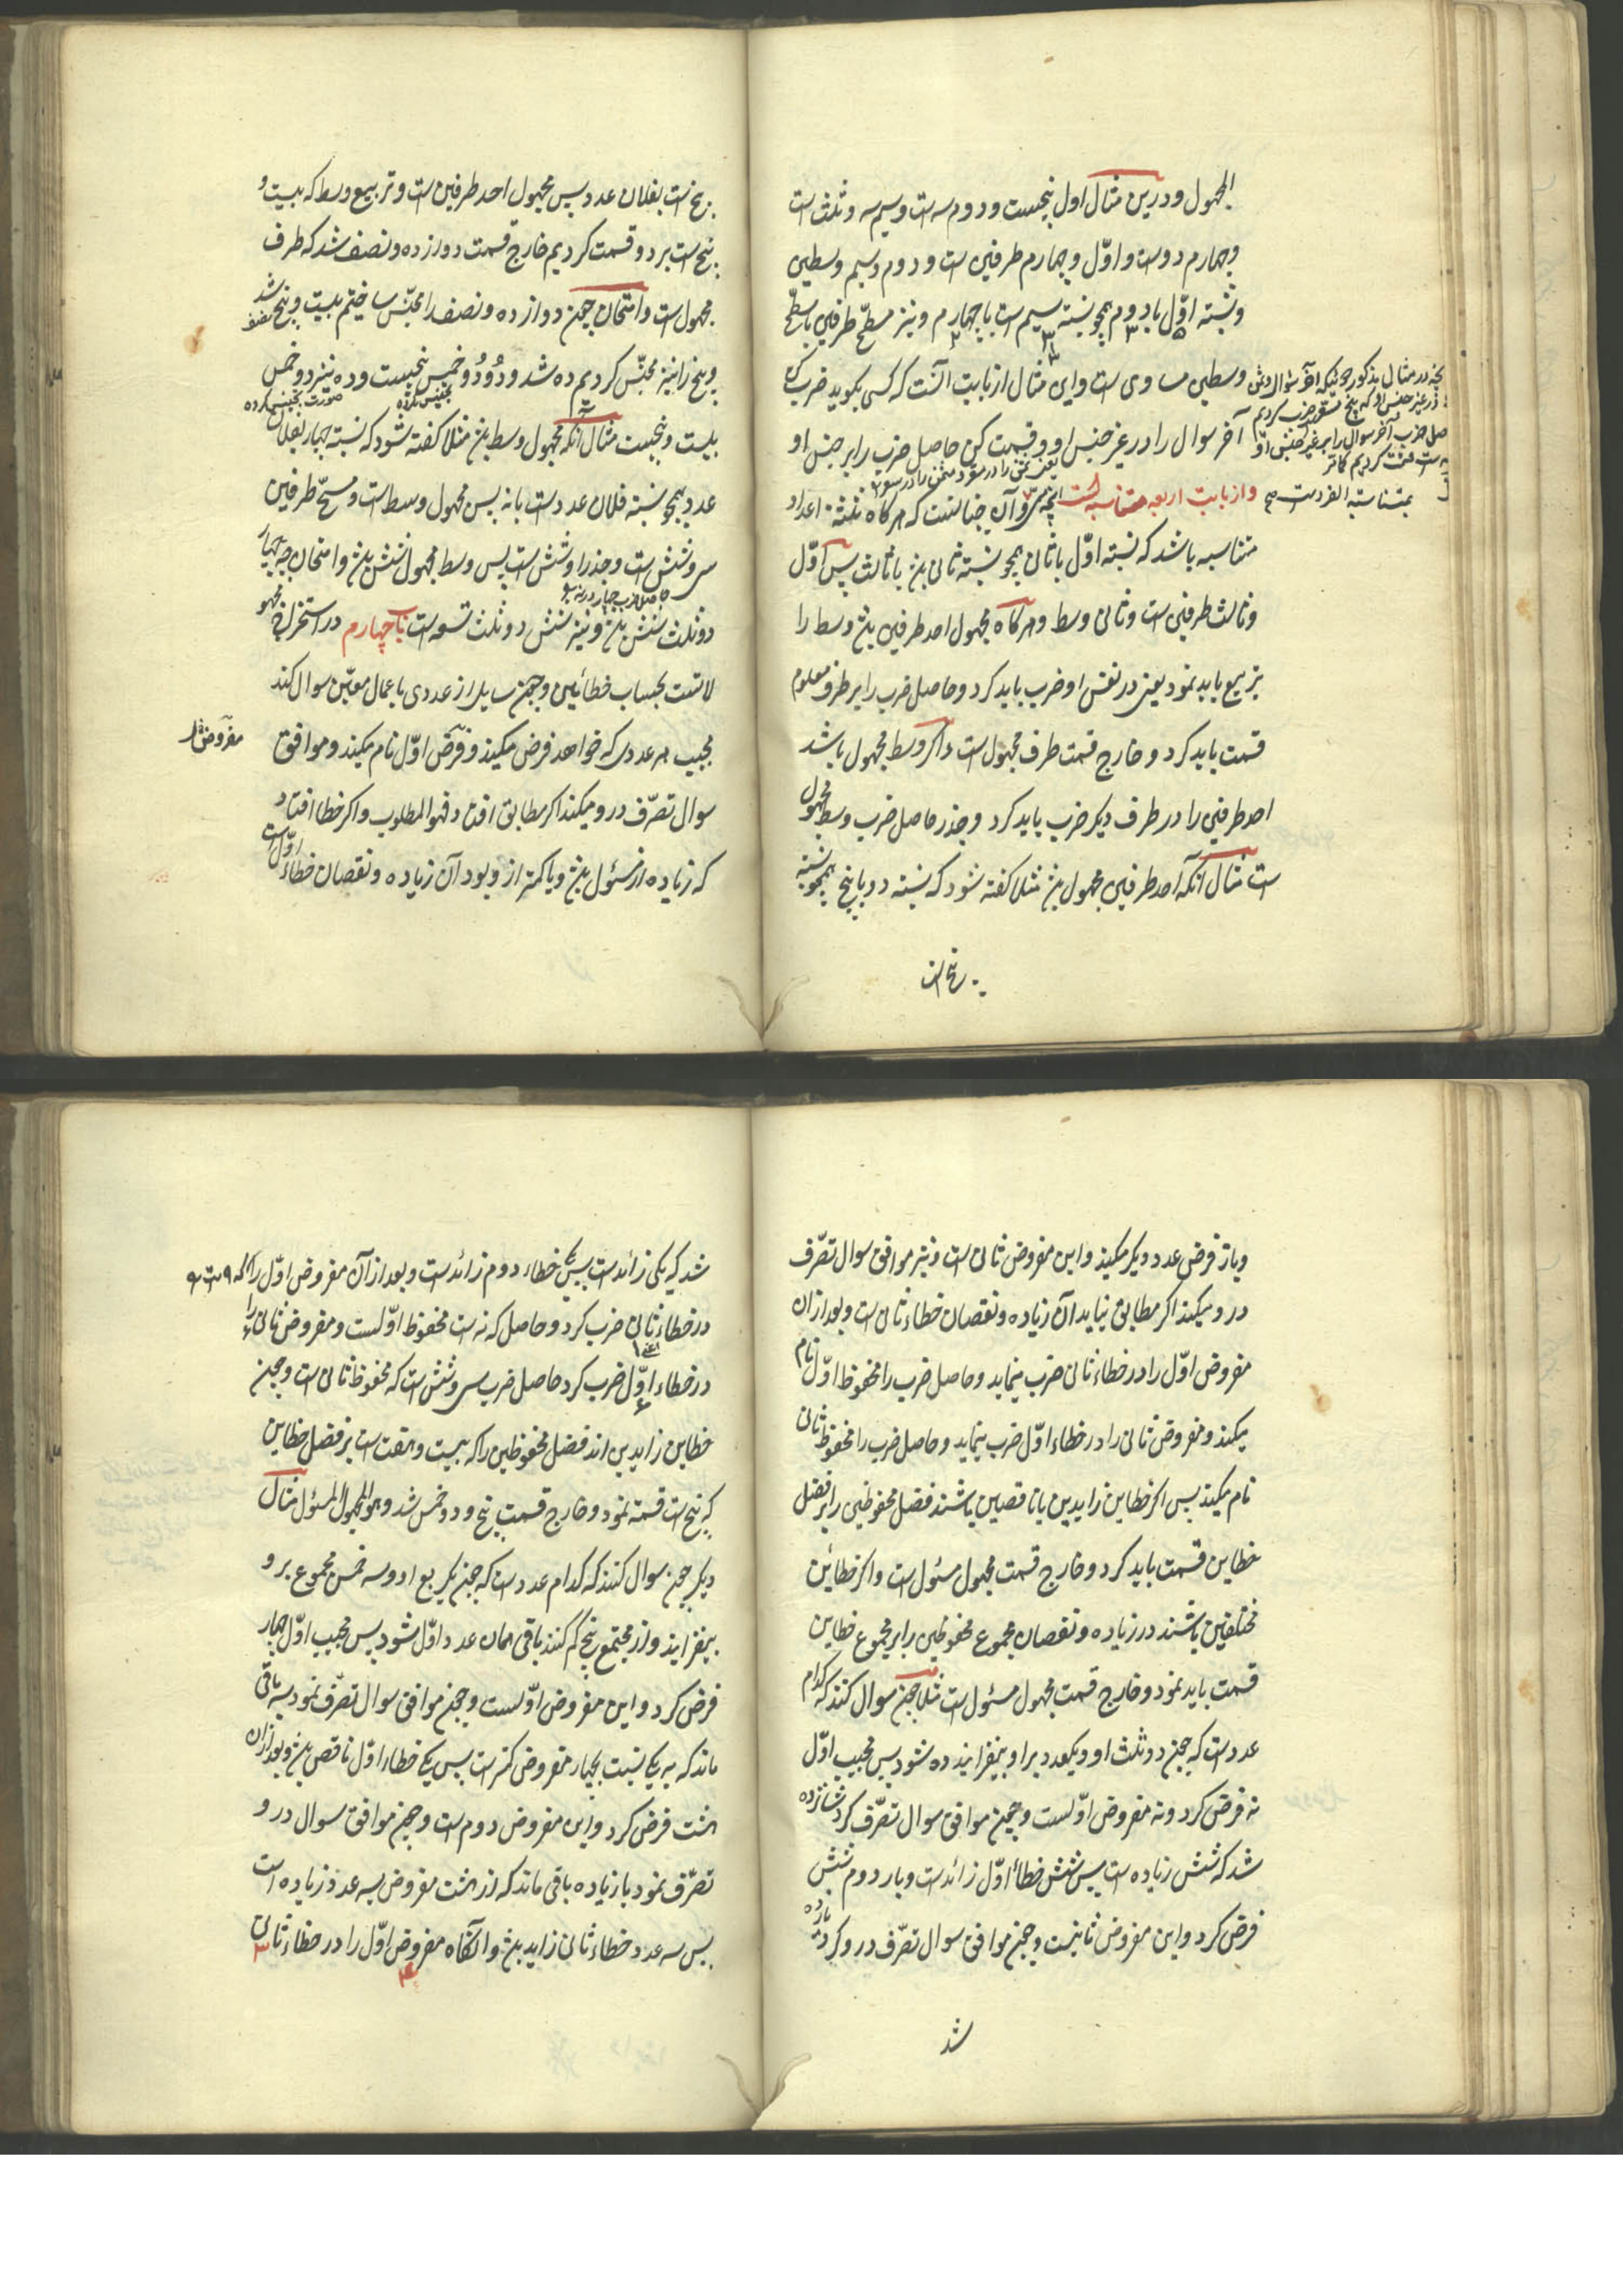 المجهول ودرین مثال اول پنجست ودوم سه است وسیم سه وثلث است
وچهارم دوست واوّل وچهارم طرفین است ودوم وسیم وسطین
ونسبته اوّل بادوم همچو نسبته سیم است باچهارم ونیز مسطّح طرفین با مسطّح
وسطین مساوی است واین مثال ازبابت آنست که کسی بکوید ضرب کن
آخر سوال را در غیر جنس او وقسمت کن حاصل ضرب را بر جنس او
وازبابت اربعه متناسبه است وآن چنانست که هرکاه ثلثه اعداد
متناسبه باشد که نسبته اوّل باثانی همچو نسبته ثانی بود باثالث پس اوّل
وثالث طرفین است وثانی وسط وهرکاه مجهول احد طرفین بود وسط را
تربیع باید نمود یعنی در نفس او ضرب باید کرد وحاصل ضرب را بر طرف معلوم
قسمت باید کرد وخارج قسمت طرف مجهول است واکر وسط مجهول باشد
احد طرفین را در طرف دیکر ضرب باید کرد وجذر حاصل ضرب وسط مجهول
است مثال آنکه احد طرفین مجهول بود مثلا کفته شود که نسبته دو با پنج همچو نسبته
پنج است
پنج است بفلان عدد پس مجهول احد طرفین است وتربیع وسط که بیست و
پنج است بر دو قسمت کردیم خارج قسمت دوازده ونصف شد که طرف
مجهول است وامتحان چون دوازده ونصف را مجنّس ساختیم بیست وپنج شد نصف
وپنج را نیز مجنّس کردیم ده شد ودو دو وخمس پنجست وده نیز دو وخمس
بیست وپنجست مثال آنکه مجهول وسط بود مثلا کفته شود که نسبته چهار بفلان
عدد همچو نسبته فلان عدد است بانه پس مجهول وسط است ومسطّح طرفین
سی وشش است وجذر او شش است پس وسط مجهول شش بود وامتحان چه چهار
دوثلث شش بود ونیز شش دوثلث تسعه است باب چهارم در استخراج مجهو
لاتست بحساب خطائین وچون سایل از عددی باعمال معیّن سوال کند
مجیب هر عددی که خواهد فرض میکند وفرض اوّل نام میکند وموافق
مفروض
سوال تصرّف درو میکند اکر مطابق افتاد فهو المطلوب واکر خطا افتاد
که زیاده از مسئول بود ویا کمتر ازو بود آن زیاده ونقصان خطاء اوّل است
وباز فرض عدد دیکر میکند واین مفروض ثانی است ونیز موافق سوال تصرّف
درو میکند اکر مطابق نیاید آن زیاده ونقصان خطاء ثانی است وبعد ازان
مفروض اوّل را در خطاء ثانی ضرب نماید وحاصل ضرب را محفوظ اوّل نام
میکند ومفروض ثانی را در خطاء اوّل ضرب نماید وحاصل ضرب را محفوظ ثانی
نام میکند پس اکر خطاین زایدین یا ناقصین باشند فضل محفوظین را بر فضل
خطاین قسمت باید کرد وخارج قسمت مجهول مسئول است واکر خطائین
مختلفین باشند در زیاده ونقصان مجموع محفوظین را بر مجموع خطاین
قسمت باید نمود وخارج قسمت مجهول مسئول است مثلا چون سوال کنند که کدام
عدد است که چون دوثلث او ویکعدد بر او بیفزایند ده شود پس مجیب اوّل
نه فرض کرد ونه مفروض اوّلست وچون موافق سوال تصرّف کرد شانزده
شد که شش زیاده است پس شش خطأ اوّل زائد است وبار دوم شش
فرض کرد واین مفروض ثانیست وچون موافق سوال تصرّف درو کرد یازده
شد
شد که یکی زائد است پس یکی خطاء دوم زائد است وبعد از آن مفروض اوّل را که ۹ است
در خطاء ثانی ضرب کرد وحاصل که نه است محفوظ اوّلست ومفروض ثانی را
در خطاء اوّل ضرب کرد حاصل ضرب سی وشش است که محفوظ ثانی است وچون
خطاین زایدین اند فضل محفوظین را که بیست وهفت است بر فضل خطاین
که پنج است قسمة نمود وخارج قسمت پنج ودو خمس شد وهو المجهول المسئول مثال
دیکر چون سوال کنند که کدام عدد است که چون یکربع او وسه خمس مجموع برو
بیفزایند واز مجتمع پنج کم کنند باقی همان عدد اوّل شود پس مجیب اوّل چهار
فرض کرد واین مفروض اوّلست وچون موافق سوال تصرّف نمود سه باقی
ماند که به یکی نسبت بچهار مفروض کمتر است پس یکی خطاء اوّل ناقص بود وبعد ازان
هشت فرض کرد واین مفروض دوم است وچون موافق سوال درو
تصرّف نمود یازده باقی ماند که از هشت مفروض بسه عدد زیاده است
پس سه عدد خطاء ثانی زاید بود وآنکاه مفروض اوّل را در خطاء ثانی